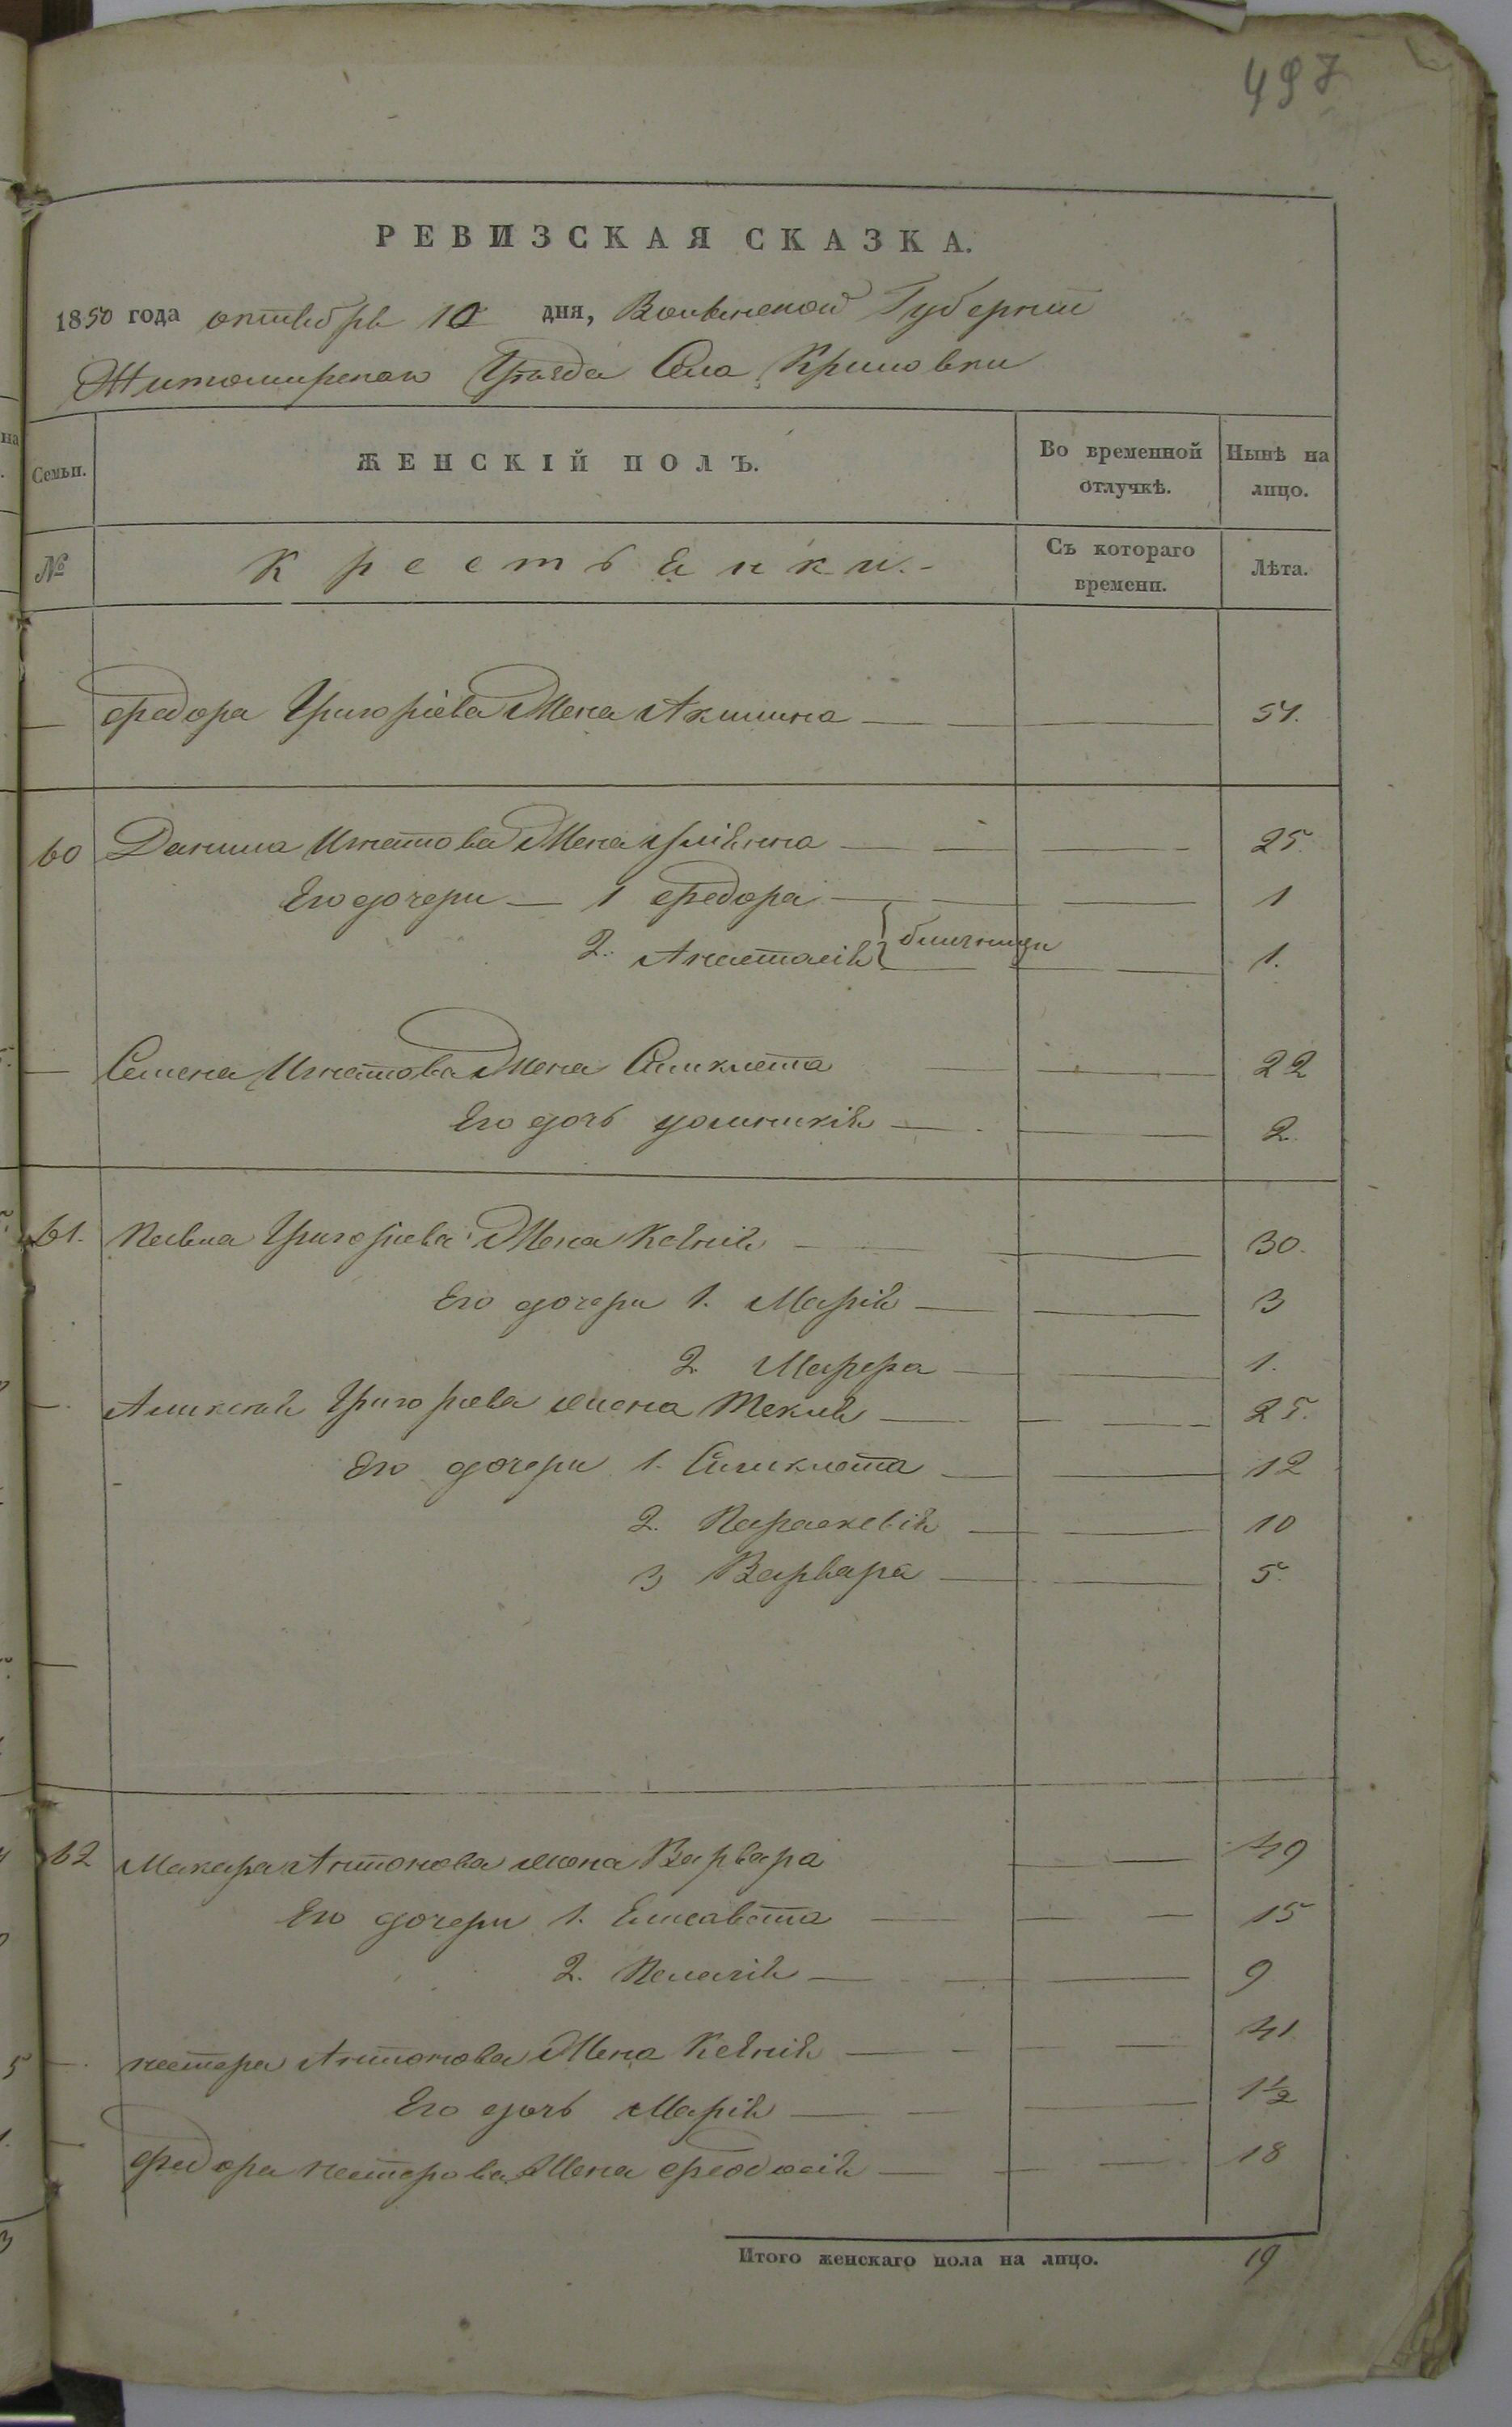 497
РЕВИЗСКАЯ СКАЗКА.
1850 года октября 10 дня, Волынской Губернии
Житомирскаго Уезда Села Криловки
Семьи. ЖЕНСКІЙ ПОЛЪ. Во временной отлучкѣ. Нынѣ на лицо.
№ Крестьянки. Съ котораго времени. Лѣта.
Федора Григоріева Жена Акилина 54.
60 Данила Игнатова Жена Уліянна 25
Его дочери 1 Федора 1
2. Анастасія близницы 1.
Семена Игнатова Жена Синклета 22
Его дочь Домникія 2.
61. Павла Григоріева Жена Ксенія 30.
Его дочери 1. Марія 3
2. Марфа 1.
Аликсѣя Григориева жена Текля 25.
Его дочери 1. Синклета 12
2. Параскевія 10
3 Варвара 5.
62 Макара Антонова жена Варвара 49
Его дочери 1. Елисавета 15
2. Пелагія 9
Нестера Антонова Жена Ксенія 41
Его дочь Марія 1½
Федора Нестерова Жена Феодосія 18
Итого женскаго пола на лицо. 19